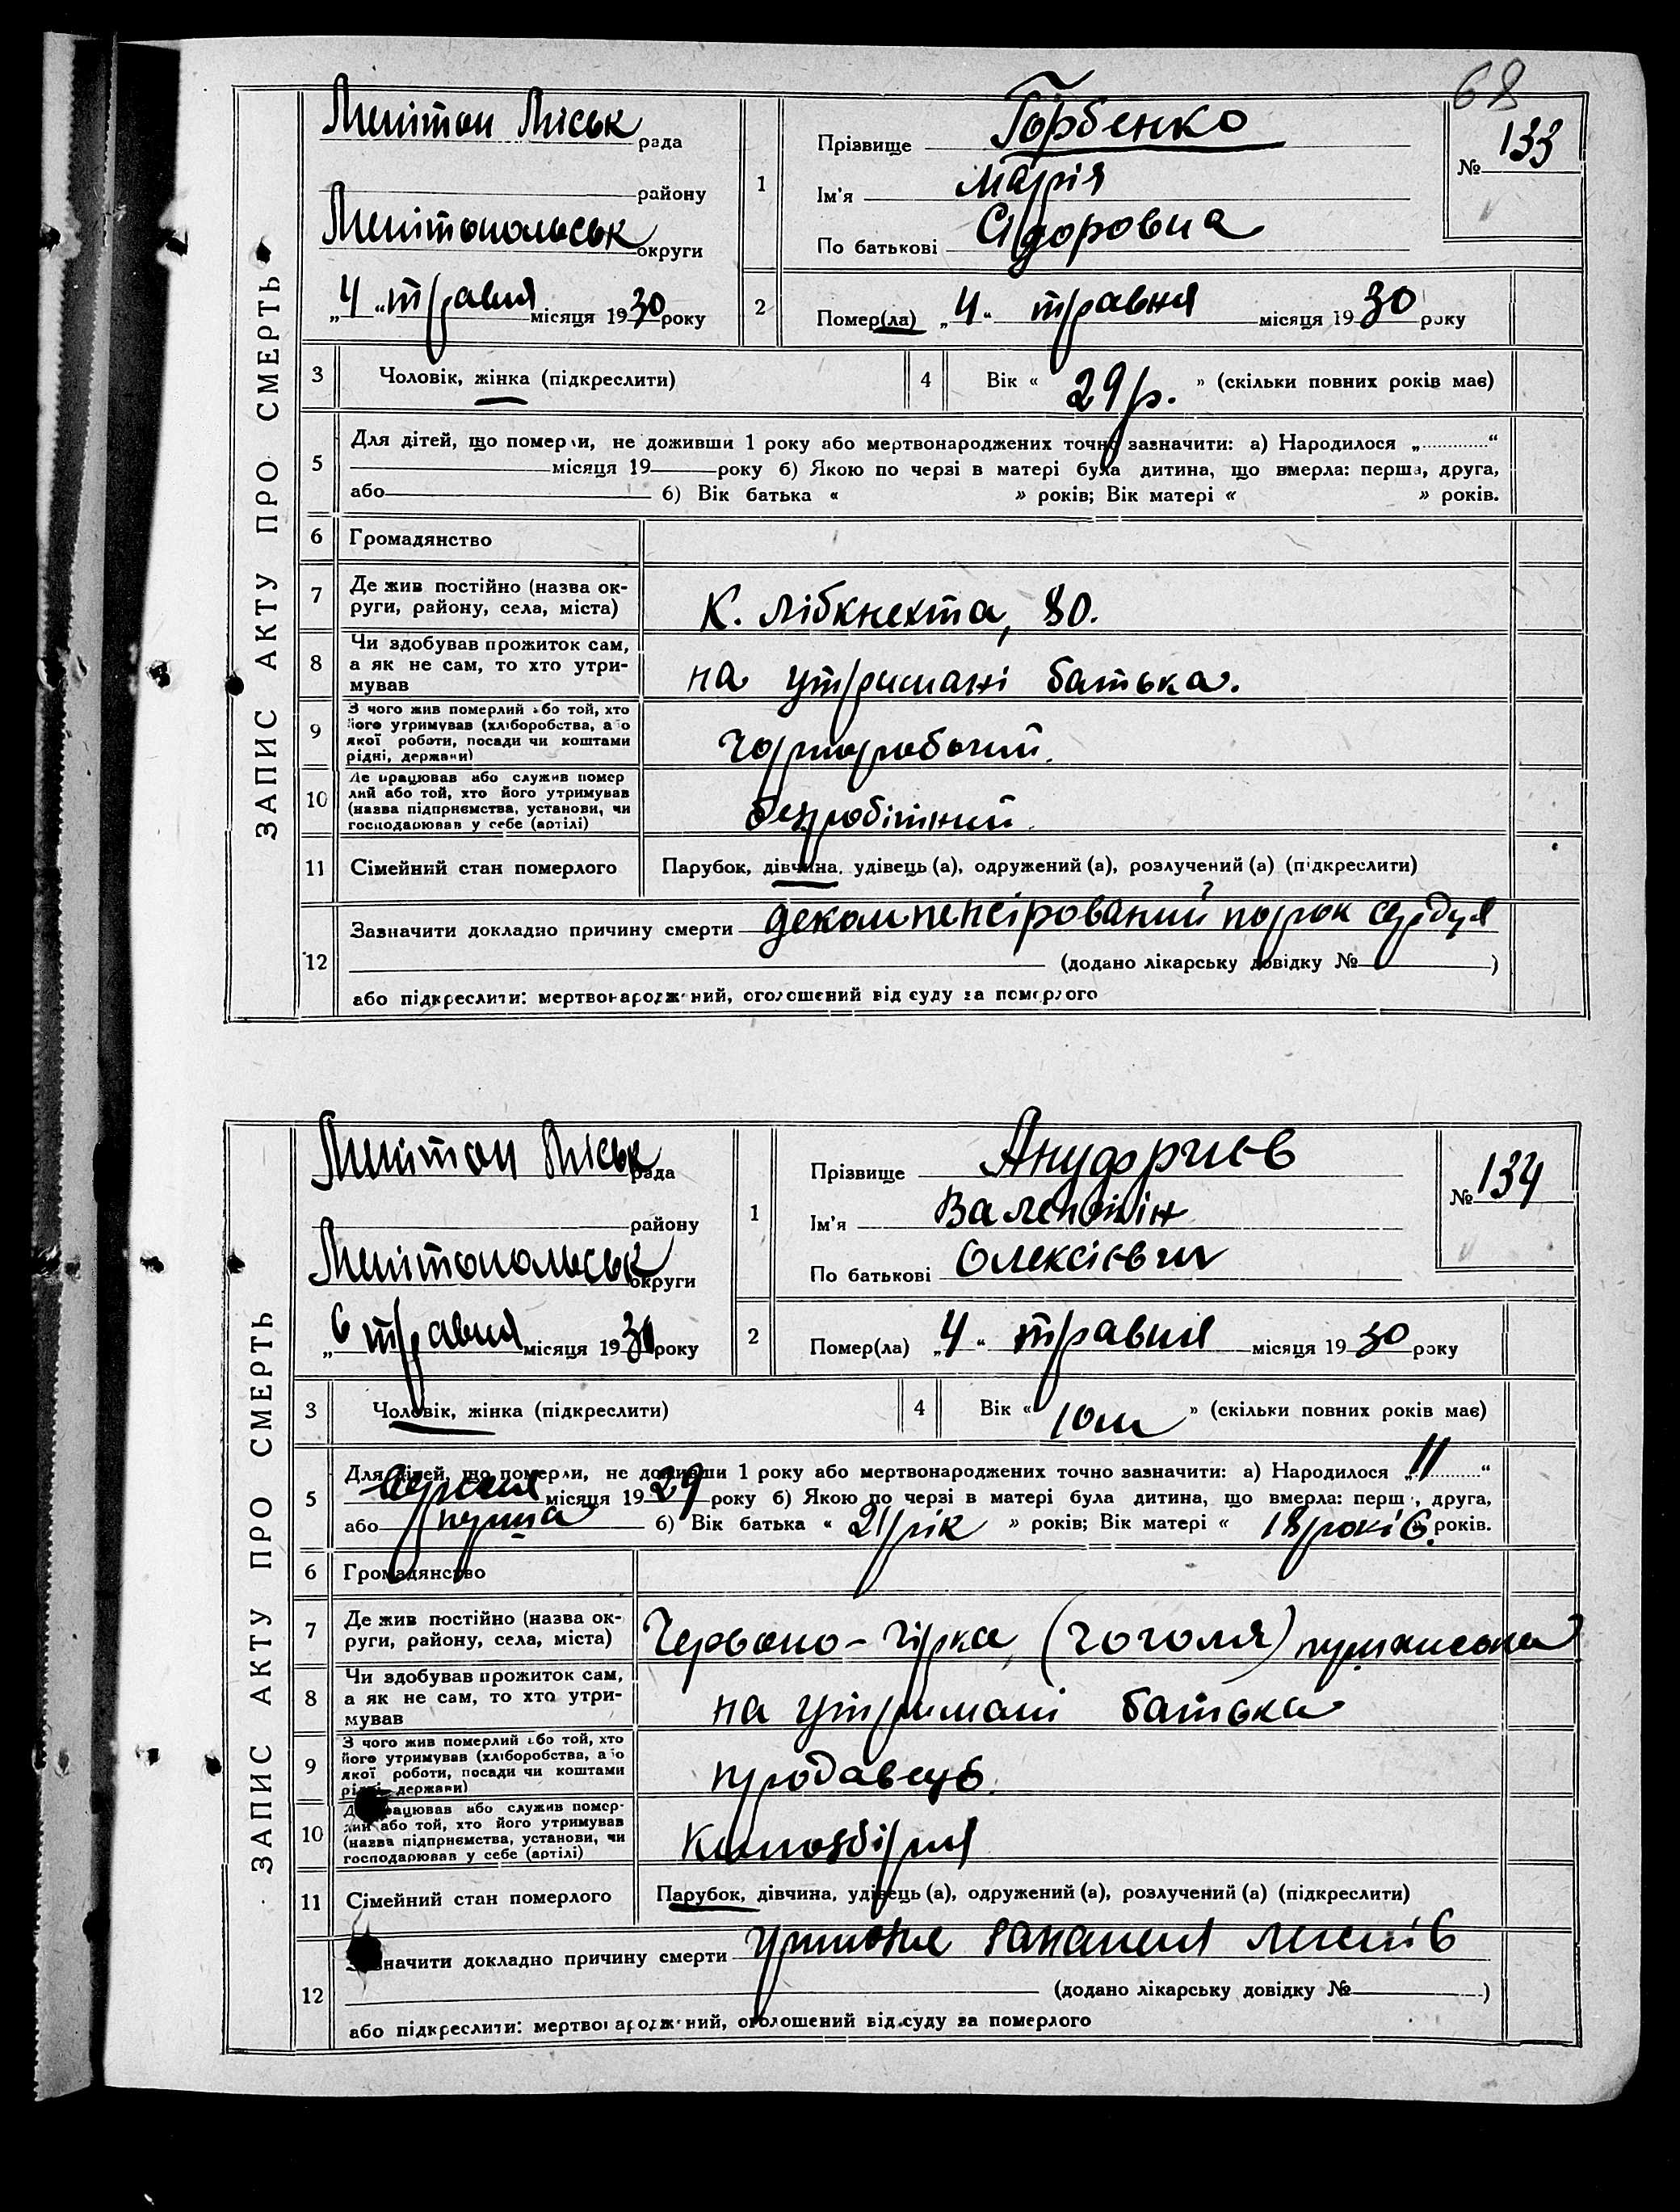 68
ЗАПИС АКТУ ПРО СМЕРТЬ
Мелітоп Міськ рада
району
Мелітопольськ округи
„4“ травня місяця 1930 року
1
Прізвище Горбенко
Ім'я Марія
По батькові Сидоровна
№ 133
2
Помер(ла) „4“ травня місяця 1930 року
3
Чоловік, жінка (підкреслити)
4
Вік « 29 р. » (скільки повних років має)
5
Для дітей, що померли, не доживши 1 року або мертвонароджених точно зазначити: а) Народилося „ “
місяця 19 року б) Якою по черзі в матері була дитина, що вмерла: перша, друга,
або б) Вік батька « » років; Вік матері « » років.
6
Громадянство
7
Де жив постійно (назва ок-
руги, району, села, міста)
К. Лібкнехта, 80.
8
Чи здобував прожиток сам,
а як не сам, то хто утри-
мував
на утримані батька.
9
З чого жив померлий або той, хто
його утримував (хліборобства, або
якої роботи, посади чи коштами
рідні, держави)
Чорноробочий.
10
Де працював або служив помер
лий або той, хто його утримував
(назва підприємства, установи, чи
господарював у себе (артілі)
безробітний.
11
Сімейний стан померлого
Парубок, дівчина, удівець (а), одружений (а), розлучений (а) (підкреслити)
12
Зазначити докладно причину смерти декомпенсірований порок сердця
(додано лікарську довідку № )
або підкреслити: мертвонароджений, оголошений від суду за померлого
ЗАПИС АКТУ ПРО СМЕРТЬ
Мелітоп Міськ рада
району
Мелітопольськ округи
„6 травня місяця 1930 року
1
Прізвище Ануфриєв
Ім'я Валентін
По батькові Олексієвич
№ 134
2
Помер(ла) „4“ травня місяця 1930 року
3
Чоловік, жінка (підкреслити)
4
Вік « 10 м » (скільки повних років має)
5
Для дітей, що померли, не доживши 1 року або мертвонароджених точно зазначити: а) Народилося „11“
серпня місяця 1929 року б) Якою по черзі в матері була дитина, що вмерла: перш , друга,
або перша б) Вік батька « 21 рік » років; Вік матері « 18 років » років.
6
Громадянство
7
Де жив постійно (назва ок-
руги, району, села, міста)
Червоно-гірка (Гоголя)
8
Чи здобував прожиток сам,
а як не сам, то хто утри-
мував
на утримані батька
9
З чого жив померлий або той, хто
його утримував (хліборобства, або
якої роботи, посади чи коштами
рідні, держави)
продавець.
10
Де працював або служив помер-
лий або той, хто його утримував
(назва підприємства, установи, чи
господарював у себе (артілі)
11
Сімейний стан померлого
Парубок, дівчина, удівець (а), одружений (а), розлучений (а) (підкреслити)
12
Зазначити докладно причину смерти запалення легенів
(додано лікарську довідку № )
або підкреслити: мертвонароджений, оголошений від суду за померлого